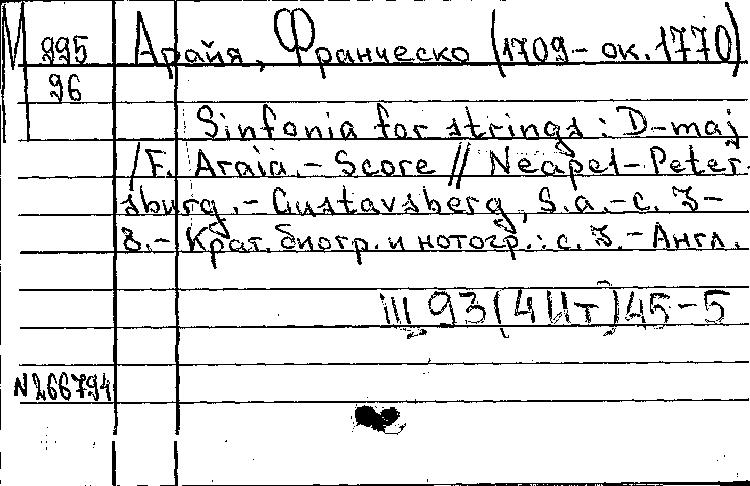 М 995 Арайя, Франческо (1709-ок. 1770)
96
Sinfonia for strings: D-maj
/F. Araia.-Score // Neapel-Peter-
sburg.-Gustavsberg, S.a.-c. 3-
8.- Крат. биогр. и нотогр.: с. 3.-Англ.
III 93(4Ит)45-5
N266794